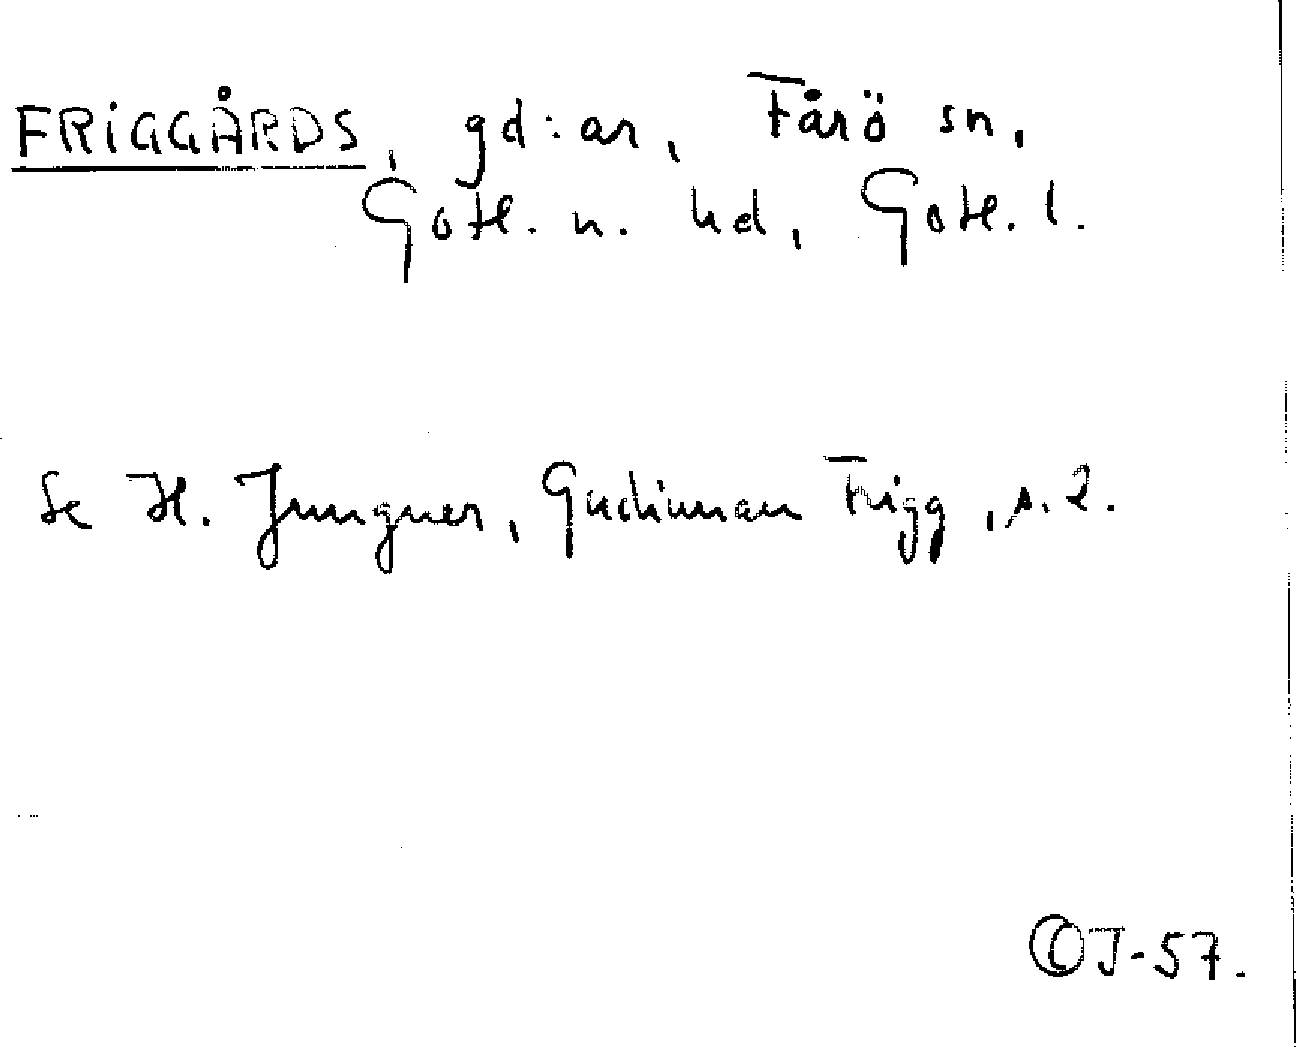 FRIGGÅRDS, gd:ar, Fårö sn,
Gotl. n. hd, Gotl. l.
Se H. Jungner, Gudinnan Frigg, s. 2.
©J-57.